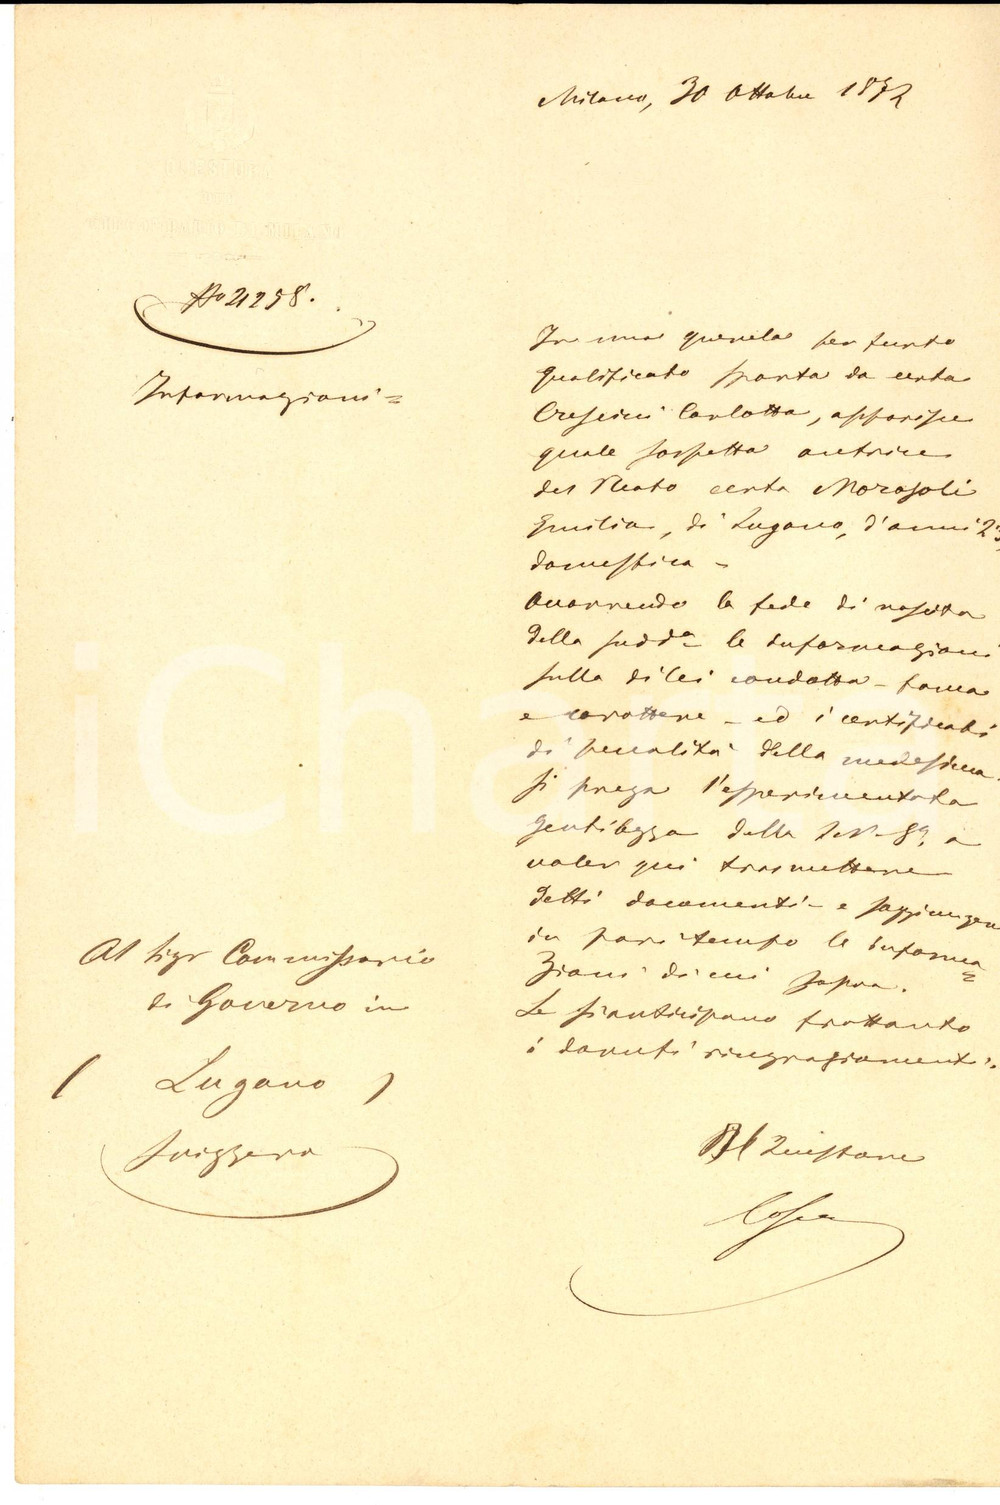 Milano, 30 Ottobre 1872
No 21258.
Informazioni =
In una querela per furto
qualificato sporta da certa
Crescini Carlotta, apparisce
quale sospetta autrice
del Reato certa Morosoli
Emilia, di Lugano, d'anni 23,
domestica -
Occorrendo la fede di nascita
della sudda le informazioni
sulla di lei condotta - fama
e carattere - ed i certificati
di penalità della medesima.
si prega l'esperimentata
gentilezza della S. V. a
voler qui trasmettere
detti documenti - e soggiungere
in pari tempo le informa=
zioni di cui sopra.
Le si anticipano trattanto
i dovuti ringraziamenti.
Al Sigr Commissario
di Governo in
( Lugano )
Svizzera
Il Questore
Cossa
iChart